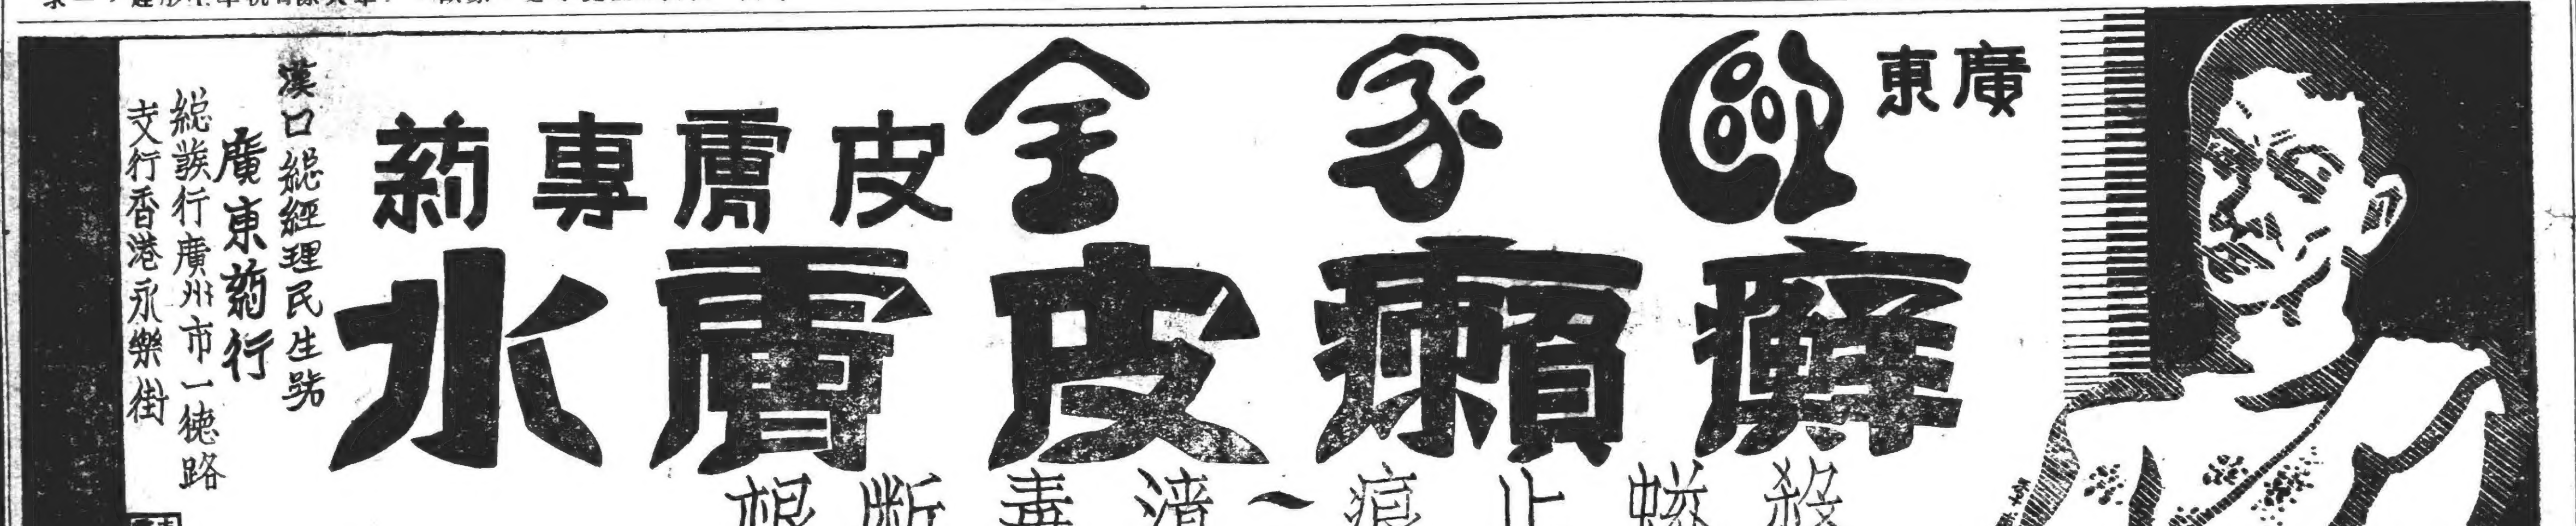 廣東
歐家全皮膚專药
癬癩皮膚水
殺 止痕～清毒断根
漢口総經理民生號
廣東药行
総發行廣州市一德路
支行香港永樂街